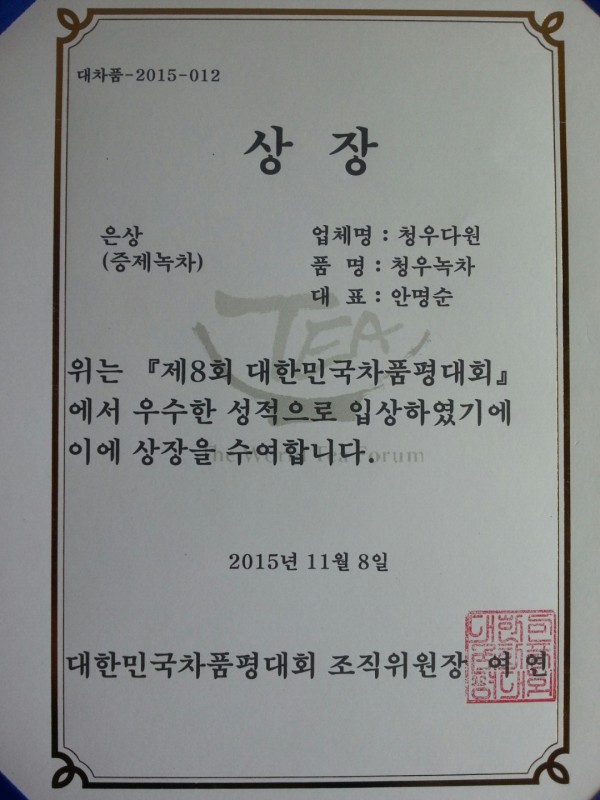 대차품-2015-012
상 장
은상
(증제녹차)
업체명 : 청우다원
품 명 : 청우녹차
대 표 : 안명순
TEA
위는 『제8회 대한민국차품평대회』
에서 우수한 성적으로 입상하였기에
이에 상장을 수여합니다.
The World Tea Forum
2015년 11월 8일
대한민국차품평대회 조직위원장 여 연